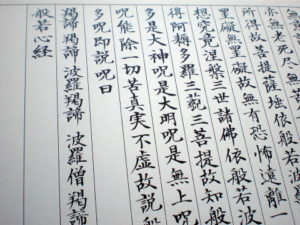 亦無老死尽無
所得故菩提薩埵依般若波
罣礙無罣礙故無有恐怖遠離一
想究竟涅槃三世諸佛依般若波
得阿耨多羅三藐三菩提故知般
多是大神呪是大明呪是無上呪
呪能除一切苦真実不虚故説般
多呪即説呪曰
羯諦羯諦 波羅羯諦 波羅僧羯諦
般若心経